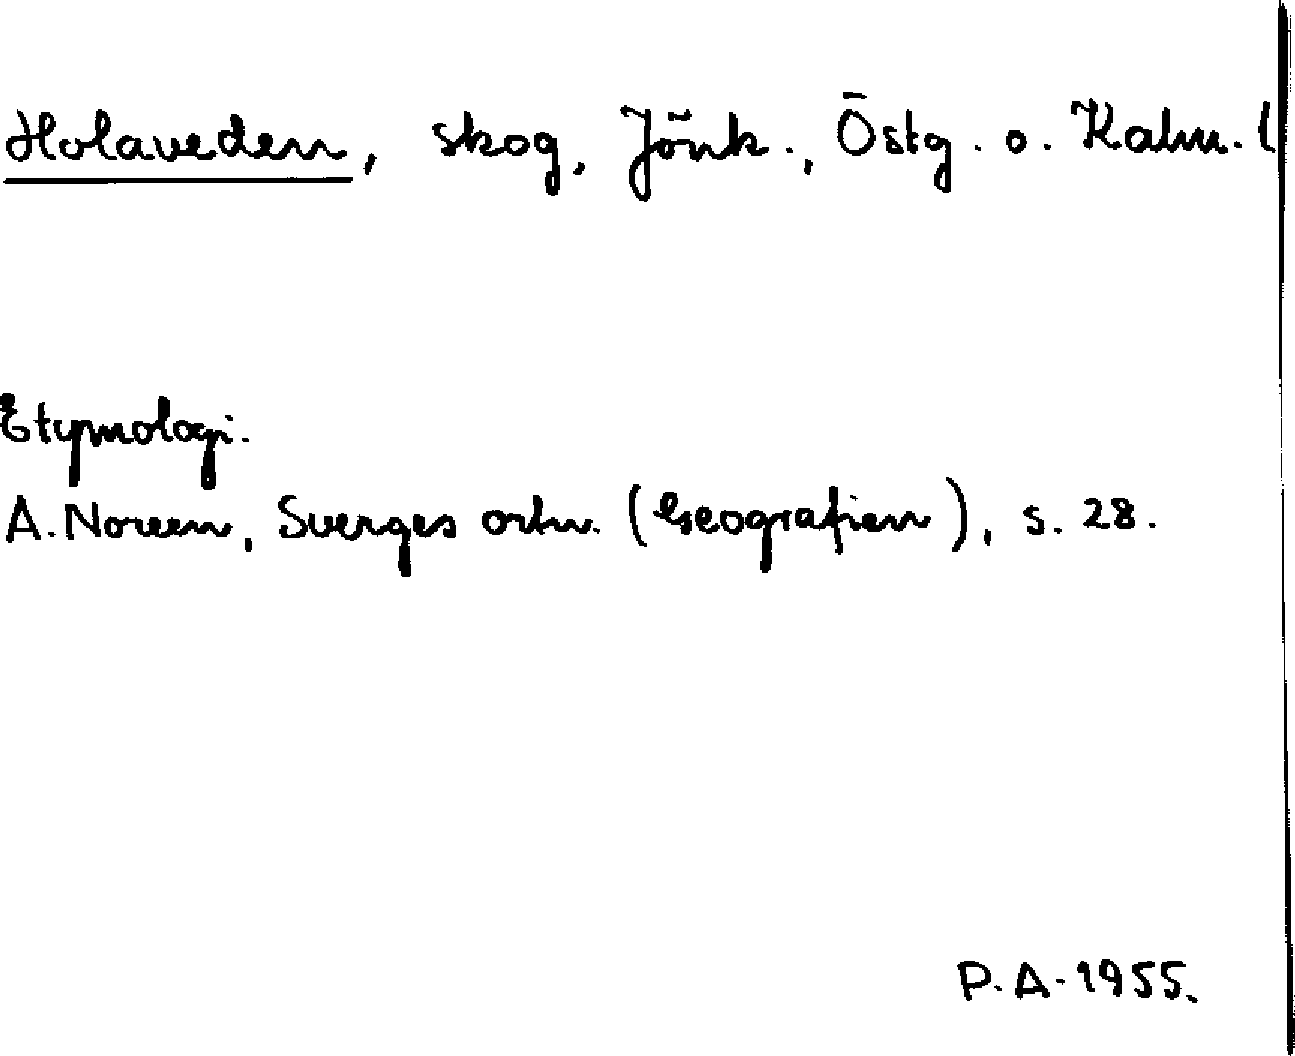 Holaveden, skog, Jönk., Östg. o. Kalm. l
Etymologi.
A. Noreen, Sverges ortn. (Geografien), s. 28.
P. A. 1955.